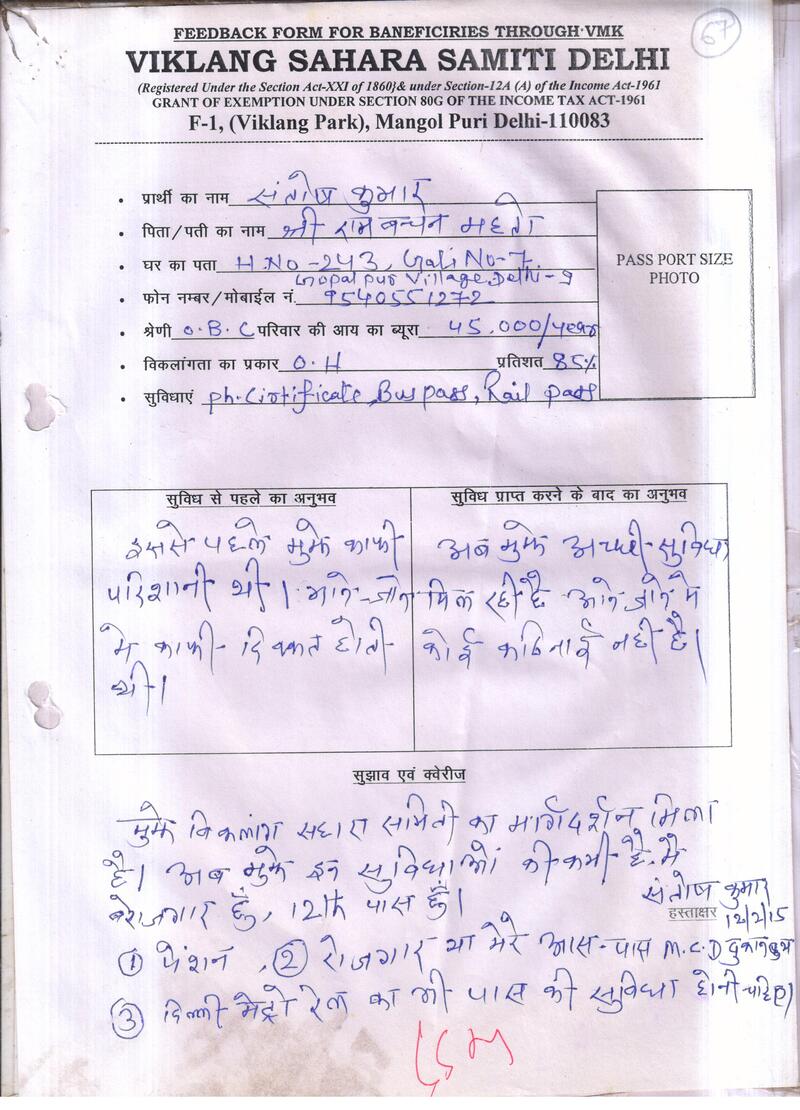 67
FEEDBACK FORM FOR BANEFICIRIES THROUGH VMK
VIKLANG SAHARA SAMITI DELHI
(Registered Under the Section Act-XXI of 1860}& under Section-12A (A) of the Income Act-1961
GRANT OF EXEMPTION UNDER SECTION 80G OF THE INCOME TAX ACT-1961
F-1, (Viklang Park), Mangol Puri Delhi-110083
• प्रार्थी का नाम संतोष कुमार
• पिता/पती का नाम श्री राम बच्चन महतो
• घर का पता H.No-243, Gali No-7,
Gopalpur Village, Delhi-9
• फोन नम्बर/मोबाईल नं. 9540551272
• श्रेणी O.B.C परिवार की आय का ब्यूरा 45,000/year
• विकलांगता का प्रकार O.H प्रतिशत 85%
• सुविधाएं ph. Cirtificate, Bus pass, Rail pass
PASS PORT SIZE
PHOTO
सुविध से पहले का अनुभव
इससे पहले मुझे काफी
परिशानी थी। आने-जाने
मे काफी दिक्कत होती
थी।
सुविध प्राप्त करने के बाद का अनुभव
अब मुझे अच्छी सुविधा
मिल रही है आने जाने मे
कोई कठिनाई नही है।
सुझाव एवं क्वेरीज
मुझे विकलांग सहारा समिती का मार्गदर्शन मिला
है। अब मुझे इन सुविधाओं की कमी है. मै
बेरोजगार हुँ, 12th पास हुँ।
संतोष कुमार
हस्ताक्षर 12/2/15
① पेंशन, ② रोजगार या मेरे आस-पास M.C.D दुकान
③ दिल्ली मेट्रो रेल का भी पास की सुविधा होनी चाहिए